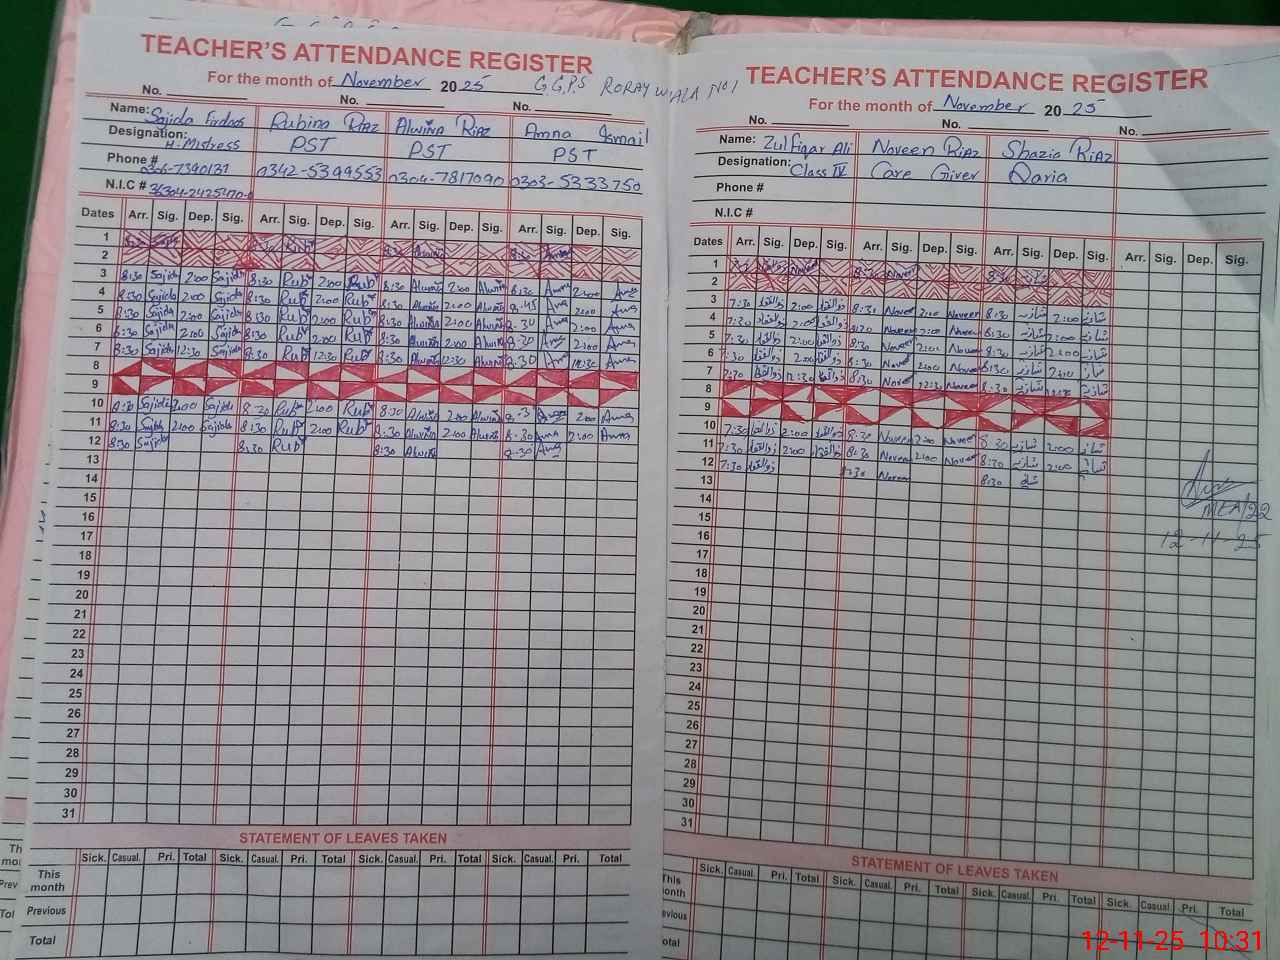 TEACHER'S ATTENDANCE REGISTER
For the month of November 2025 G.G.P.S RORAY WALA NO 1
No. No. No.
Name: Sajida Firdos Rubina Riaz Alwina Riaz Amna Ismail
Designation: H. Mistress PST PST PST
Phone # 0342-5399553 0304-7817090 0303-5333750
N.I.C #
Dates Arr. Sig. Dep. Sig. Arr. Sig. Dep. Sig. Arr. Sig. Dep. Sig. Arr. Sig. Dep. Sig.
1
2
3 8:30 Sajida 2:00 Sajida 8:30 Rub 2:00 Rub 8:30 Alwina 2:00 Alwina 8:30 Amna 2:00 Amna
4 8:30 Sajida 2:00 Sajida 8:30 Rub 2:00 Rub 8:30 Alwina 2:00 Alwina 8:45 Amna 2:00 Amna
5 8:30 Sajida 2:00 Sajida 8:30 Rub 2:00 Rub 8:30 Alwina 2:00 Alwina 8:30 Amna 2:00 Amna
6 8:30 Sajida 2:00 Sajida 8:30 Rub 2:00 Rub 8:30 Alwina 2:00 Alwina 8:30 Amna 2:00 Amna
7 8:30 Sajida 12:30 Sajida 8:30 Rub 12:30 Rub 8:30 Alwina 12:30 Alwina 8:30 Amna Amna
8
9
10 8:30 Sajida 2:00 Sajida 8:30 Rub 2:00 Rub 8:30 Alwina 2:00 Alwina 2:00 Amna
11 8:30 Sajida 2:00 Sajida 8:30 Rub 2:00 Rub 8:30 Alwina 2:00 Alwina 8:30 Amna 2:00 Amna
12 8:30 Sajida 8:30 Rub 8:30 Alwina 8:30 Amna
13
14
15
16
17
18
19
20
21
22
23
24
25
26
27
28
29
30
31
STATEMENT OF LEAVES TAKEN
Sick. Casual. Pri. Total Sick. Casual. Pri. Total Sick. Casual. Pri. Total Sick. Casual. Pri. Total
This month
Previous
Total
TEACHER'S ATTENDANCE REGISTER
For the month of November 2025
No. No. No.
Name: Zulfiqar Ali Naveen Riaz Shazia Riaz
Designation: Class IV Care Giver
Phone #
N.I.C #
Dates Arr. Sig. Dep. Sig. Arr. Sig. Dep. Sig. Arr. Sig. Dep. Sig. Arr. Sig. Dep. Sig.
1
2
3 7:30 2:00 8:30 Naveen 2:00 Naveen 8:30 شازیہ 2:00 شازیہ
4 7:30 2:00 8:30 Naveen 2:00 Naveen 8:30 شازیہ 2:00 شازیہ
5 7:30 2:00 8:30 Naveen 2:00 Naveen 8:30 شازیہ 2:00 شازیہ
6 7:30 2:00 8:30 Naveen 2:00 Naveen 8:30 شازیہ 2:00 شازیہ
7 7:30 12:30 8:30 Naveen 12:30 Naveen 8:30 شازیہ شازیہ
8
9
10 7:30 2:00 8:30 Naveen 2:00 Naveen 8:30 شازیہ 2:00 شازیہ
11 7:30 2:00 8:30 Naveen 2:00 Naveen 8:30 شازیہ 2:00 شازیہ
12 7:30 8:30 Naveen 8:30
13
14
15 MEA/22
16
17 12-11-25
18
19
20
21
22
23
24
25
26
27
28
29
30
31
STATEMENT OF LEAVES TAKEN
Sick. Casual. Pri. Total Sick. Casual. Pri. Total Sick. Casual. Pri. Total Sick. Casual. Pri. Total
12-11-25 10:31